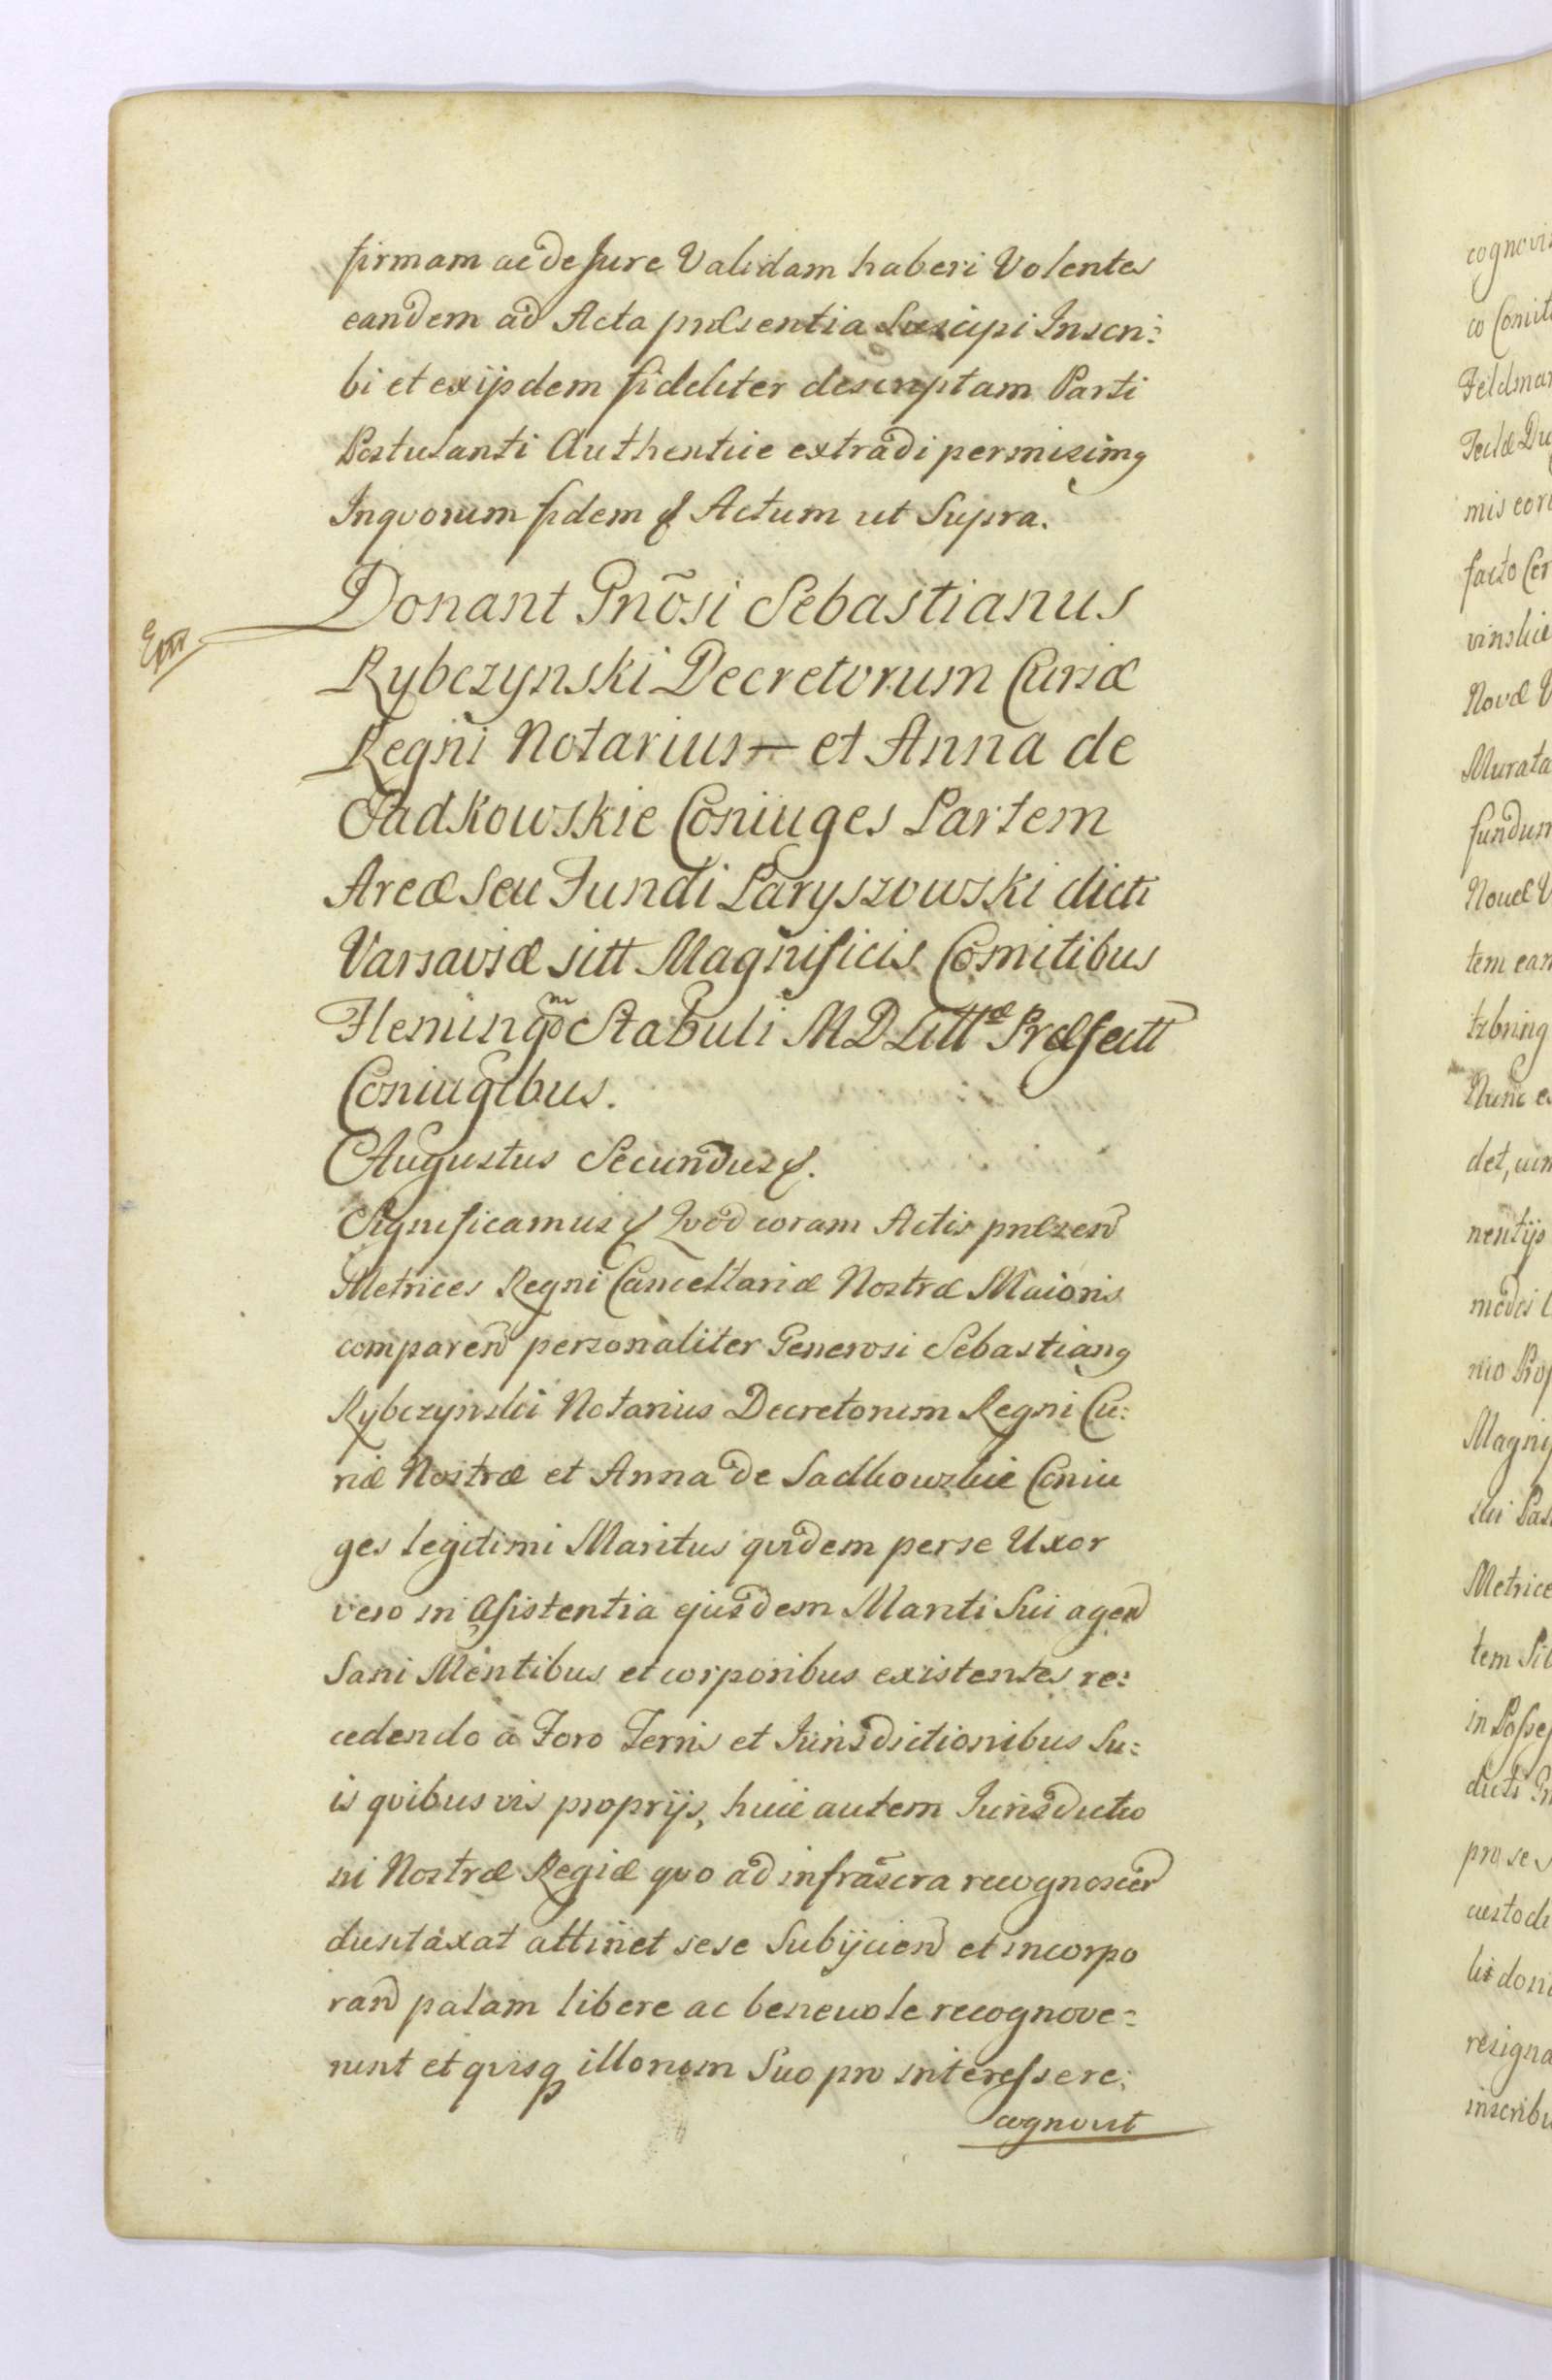 firmam ac de Jure Validam haberi Volentes
eandem ad Acta pnlsentia Suscipi Inscri:
bi et exijsdem fideliter descriptam Parti
Postulanti Authentice extradi permisimq
Inqvorum fidem Actum ut Supra.
Donant Gnõsi Sebastianus
Rybczynski Decretorum Curiæ
Regni Notarius — et Anna de
Sadkowskie Coniuges Partem
Areæ seu Fundi Paryszowski dicti
Varsaviæ sitt Magnificis Comitibus
Fleming Stabuli M D Litt Præfectt
Coniugibus.
Augustus Secundus
Significamus Qvod coram Actis pnlsen
Metrices Regni Cancellariæ Nostræ Maioris
comparen personaliter Generosi Sebastianq
Rybczynski Notarius Decretorum Regni Cu:
riæ Nostræ et Anna de Sadkowskie Coniu
ges legitimi Maritus qvidem per se Uxor
vero in Assistentia ejusdem Mariti Sui agen
Sani Mentibus et corporibus existentes re:
cedendo à Foro Terris et Jurisdictionibus Su:
is qvibus vis proprijs, huic autem Jurisdictio
ni Nostræ Regiæ qvo ad infrascra recognoscen
duntaxat attinet sese Subijcien et incorpo
ran palam libere ac benevole recognove:
runt et qvisq illorum Suo pro interesse re:
cognovit
cognovi
co Comit
Feldmar
mis
facto
vinskie
Novæ
Murata
fundum
tem
Nunc
det,
nentijs
Magni
Metrice
tem
in Posses
pro se
custodi
resigna
inscribu